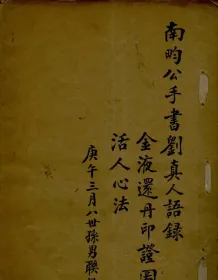 南畇公手書劉真人語錄
金液還丹印證圖
活人心法
庚午三月八世孫男聯